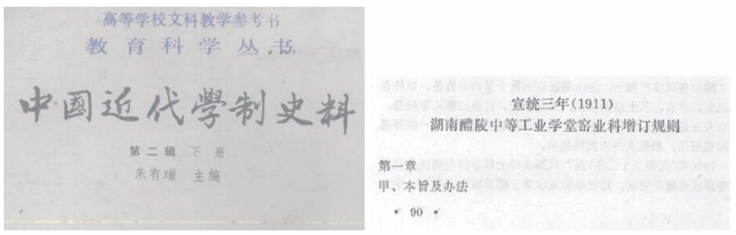 高等学校文科教学参考书
教育科学丛书
中國近代學制史料
第二辑 下册
朱有瓛 主编
宣统三年(1911)
湖南醴陵中等工业学堂窑业科增订规则
第一章
甲、本旨及办法
• 90 •